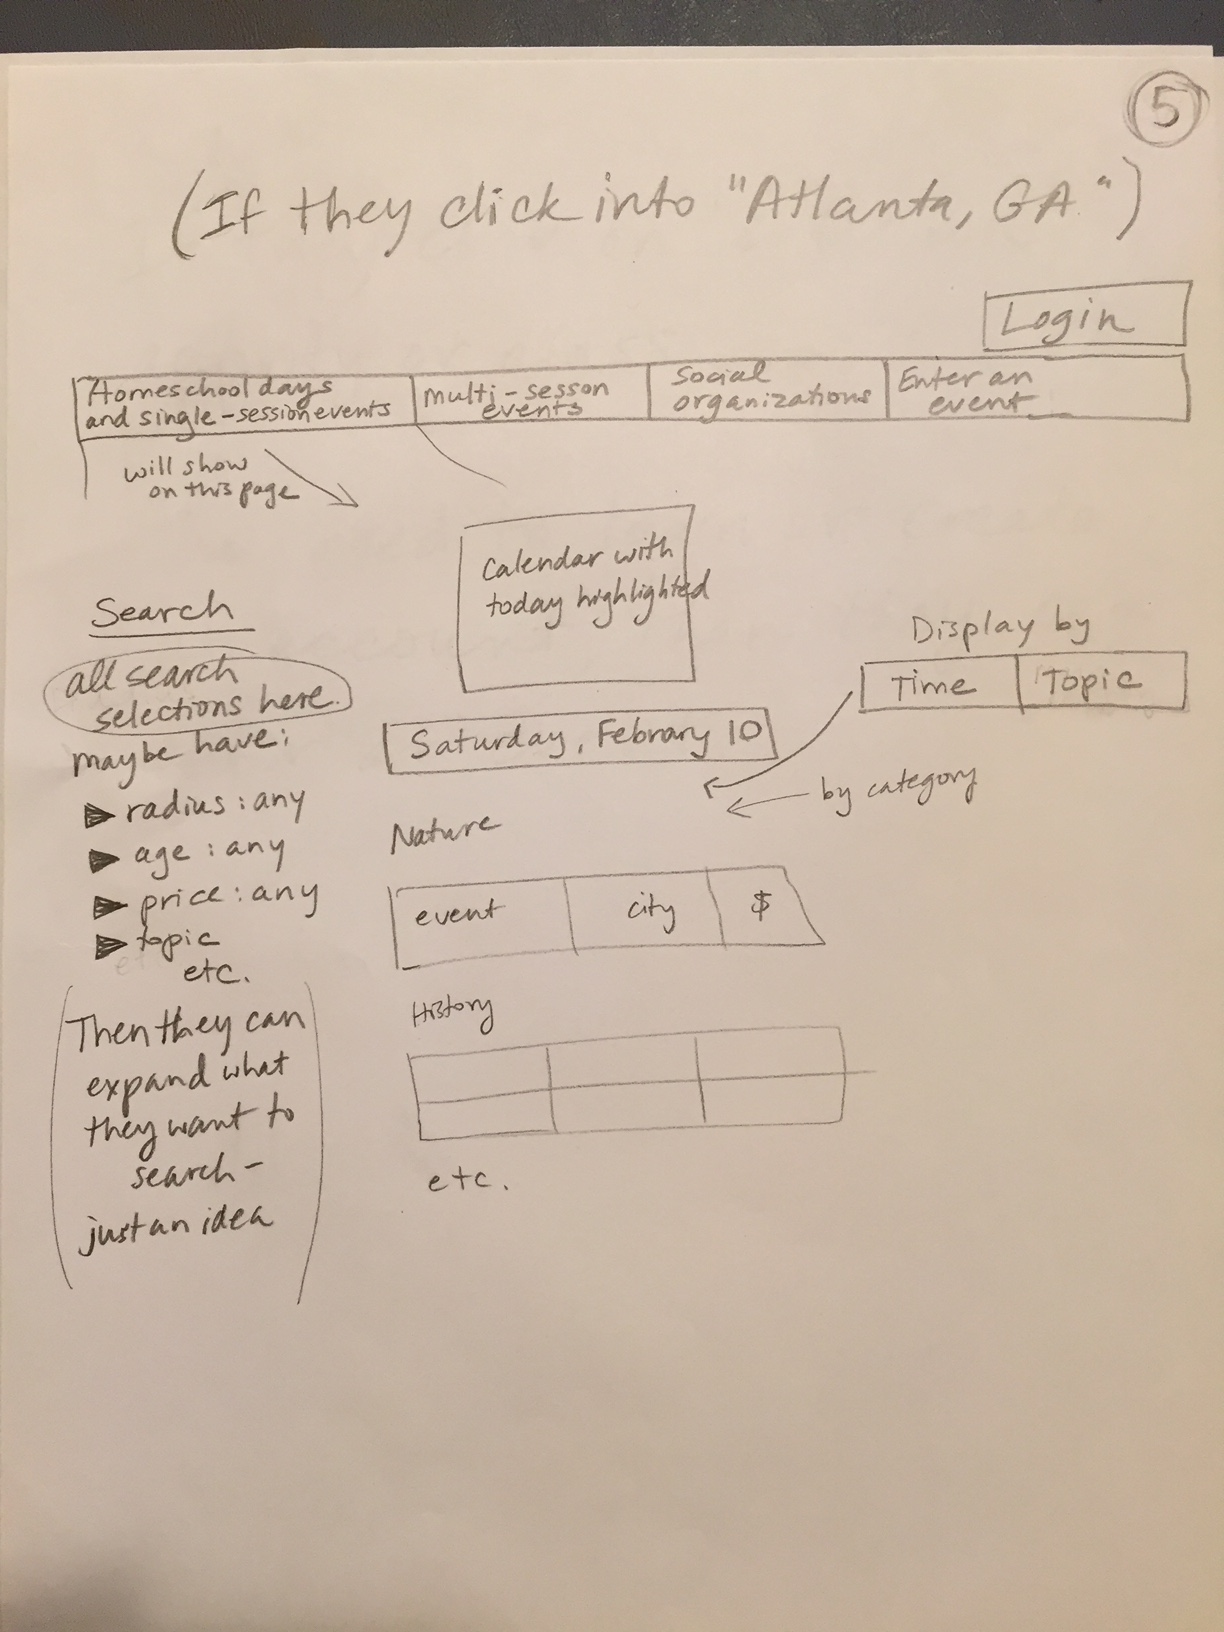 5
(If they click into "Atlanta, GA")
Login
Homeschool days
and single-session events
multi-sesson
events
Social
organizations
Enter an
event
will show
on this page
Calendar with
today highlighted
Search
all search
selections here.
maybe have:
radius: any
age: any
price: any
topic
etc.
Then they can
expand what
they want to
search-
just an idea
Display by
Time
Topic
Saturday, Febrary 10
by category
Nature
event
city
$
History
etc.